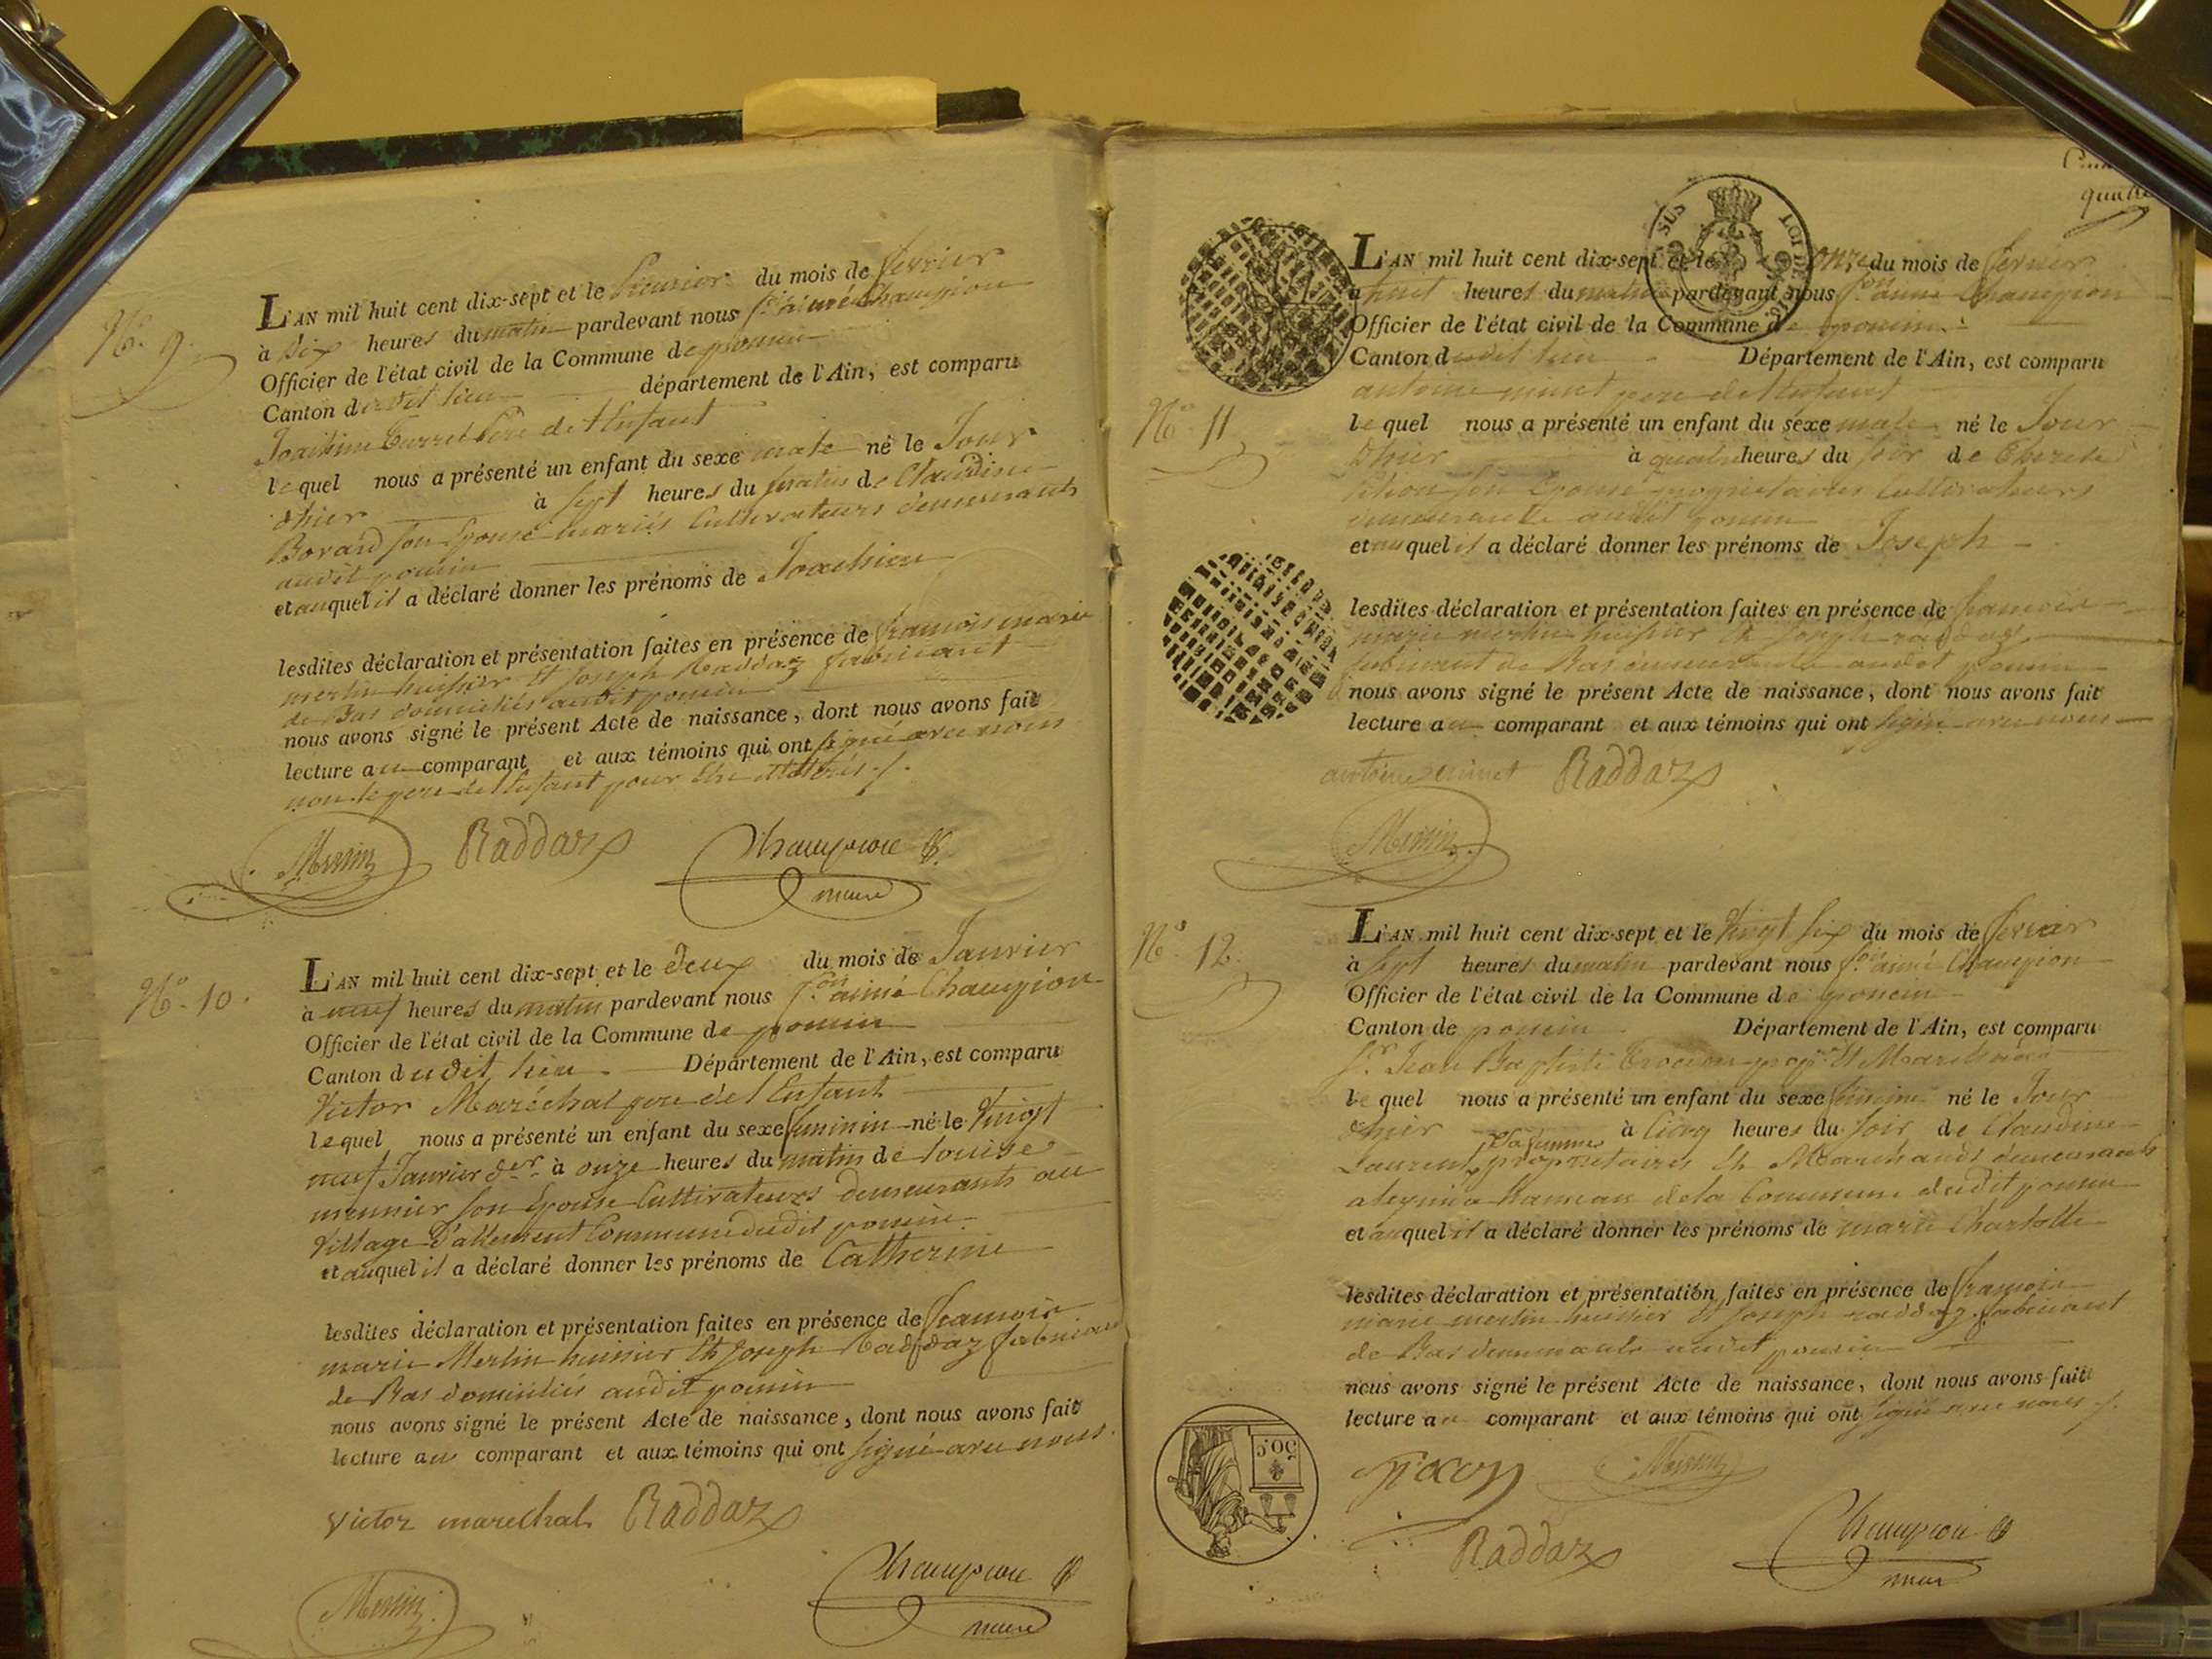 N.º 9.
L'AN mil huit cent dix-sept et le premier du mois de fevrier
à dix heures du matin pardevant nous aimé Champion
Officier de l'état civil de la Commune de poncin
Canton dudit lieu département de l'Ain, est comparu
Joachim pere de l'Enfant
lequel nous a présenté un enfant du sexe male né le Jour
d'hier à sept heures du matin de Claudine
Borard son Epouse mariés Cultivateurs demeurants
audit poncin
et auquel il a déclaré donner les prénoms de Joachim
lesdites déclaration et présentation faites en présence de francois marie
merlin huissier et Joseph Raddaz fabricant
de Bas domiciliés audit poncin
nous avons signé le présent Acte de naissance, dont nous avons fait
lecture au comparant et aux témoins qui ont signé avec nous
non le pere de l'Enfant pour être illitéré ./.
Merlin Raddaz Champion
maire
N.º 10.
L'AN mil huit cent dix-sept et le deux du mois de Janvier
à neuf heures du matin pardevant nous aimé Champion
Officier de l'état civil de la Commune de poncin
Canton dudit lieu Département de l'Ain, est comparu
Victor Maréchal pere de l'Enfant
lequel nous a présenté un enfant du sexe feminin né le Vingt
neuf Janvier d.er à onze heures du matin de Louise
meunier son Epouse Cultivateurs demeurants au
Village D'allement Commune dudit poncin
et auquel il a déclaré donner les prénoms de Catherine
lesdites déclaration et présentation faites en présence de francois
marie Merlin huissier Et Joseph Raddaz fabricant
de Bas domiciliés audit poncin
nous avons signé le présent Acte de naissance, dont nous avons fait
lecture au comparant et aux témoins qui ont signé avec nous.
Victor marechal Raddaz
Champion
Merlin
maire
quatre
SUS LOI DE
L'AN mil huit cent dix-sept et le onze du mois de fevrier
à huit heures du matin pardevant nous aimé Champion
Officier de l'état civil de la Commune de poncin
Canton dudit lieu Département de l'Ain, est comparu
antoine minet pere de l'Enfant
N.º 11
lequel nous a présenté un enfant du sexe male né le Jour
d'hier à quatre heures du soir de Therese
son Epouse proprietaires Cultivateurs
demeurants audit poncin
et auquel il a déclaré donner les prénoms de Joseph
lesdites déclaration et présentation faites en présence de francois
marie merlin huissier Et Joseph raddaz
fabricant de Bas demeurants audit poncin
nous avons signé le présent Acte de naissance, dont nous avons fait
lecture au comparant et aux témoins qui ont signé avec nous
antoine minet Raddaz
Merlin
N.º 12.
L'AN mil huit cent dix-sept et le Vingt six du mois de fevrier
à sept heures du matin pardevant nous aimé Champion
Officier de l'état civil de la Commune de poncin
Canton de poncin Département de l'Ain, est comparu
S.r Jean Baptiste Et Marchand
lequel nous a présenté un enfant du sexe feminin né le Jour
d'hier à Cinq heures du soir de Claudine
sa femme
Laurent, proprietaires Et Marchands demeurants
hameau de la Commune dudit poncin
et auquel il a déclaré donner les prénoms de marie Charlotte
lesdites déclaration et présentation faites en présence de francois
marie merlin huissier Et Joseph raddaz fabricant
de Bas demeurants audit poncin
nous avons signé le présent Acte de naissance, dont nous avons fait
lecture au comparant et aux témoins qui ont signé avec nous ./.
50.C
Merlin
Raddaz
Champion
maire